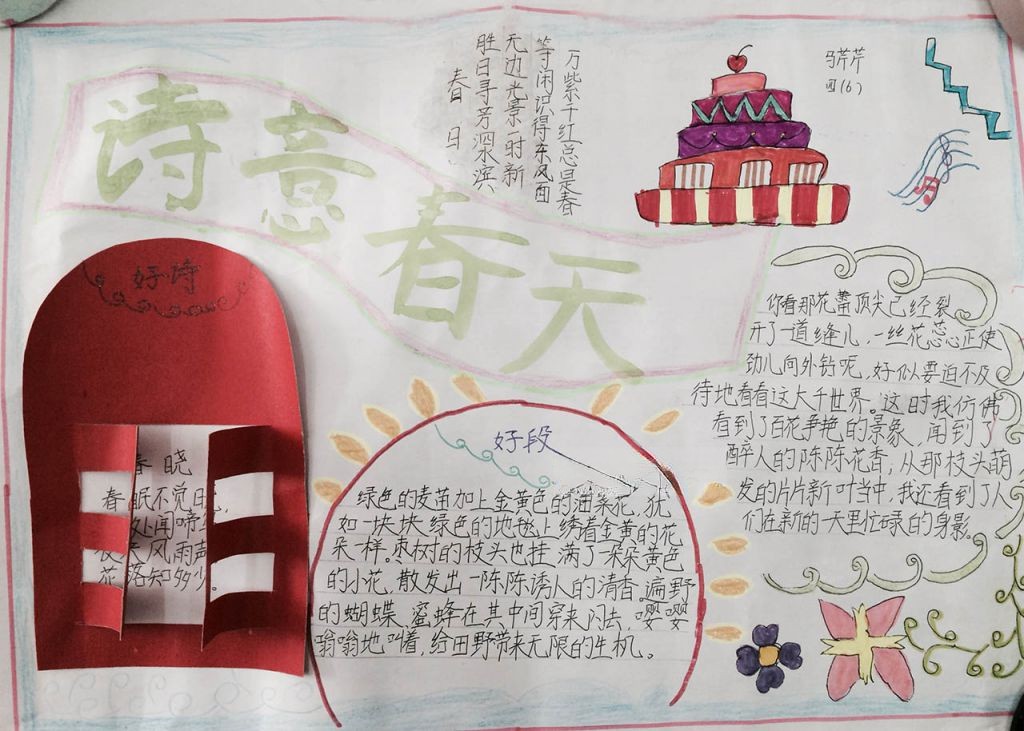 诗意春天
春日
胜日寻芳泗水滨
无边光景一时新
等闲识得东风面
万紫千红总是春
马芹芹
四(6)
好诗
春晓
春眠不觉
处闻啼
风雨声
花落知多少。
好段
绿色的麦苗加上金黄色的油菜花,犹
如一块块绿色的地毯上绣着金黄的花
朵一样。枣树的枝头也挂满了一朵朵黄色
的小花,散发出一陈陈诱人的清香。遍野
的蝴蝶、蜜蜂在其中间穿来闪去,嘤嘤
嗡嗡地叫着,给田野带来无限的生机。
你看那花蕾顶尖已经裂
开了一道缝儿,一丝花蕊正使
劲儿向外钻呢,好似要迫不及
待地看看这大千世界。这时我仿佛
看到了百花争艳的景象,闻到了
醉人的陈陈花香,从那枝头萌
发的片片新叶当中,我还看到了人
们在新的一天里忙碌的身影。